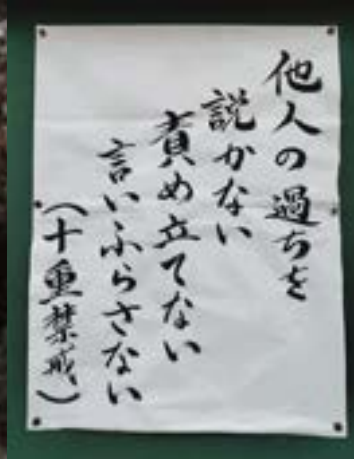 他人の過ちを
説かない
責め立てない
言いふらさない
(十重禁戒)